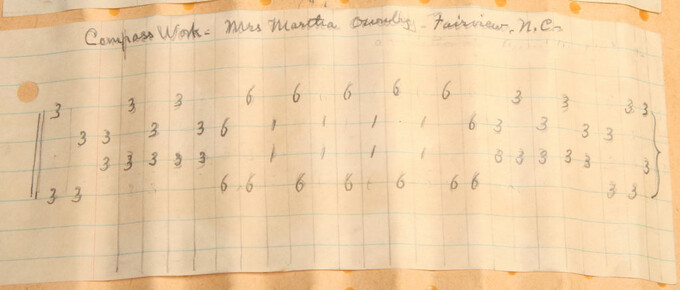 Compass Work - Mrs Martha Ownbey - Fairview, N.C.
3 3 3 6 6 6 6 6 3 3 3 3
3 3 3 3 6 1 1 1 1 6 3 3 3 3
3 3 3 3 3 1 1 1 1 3 3 3 3 3 3
3 3 6 6 6 6 6 6 6 3 3